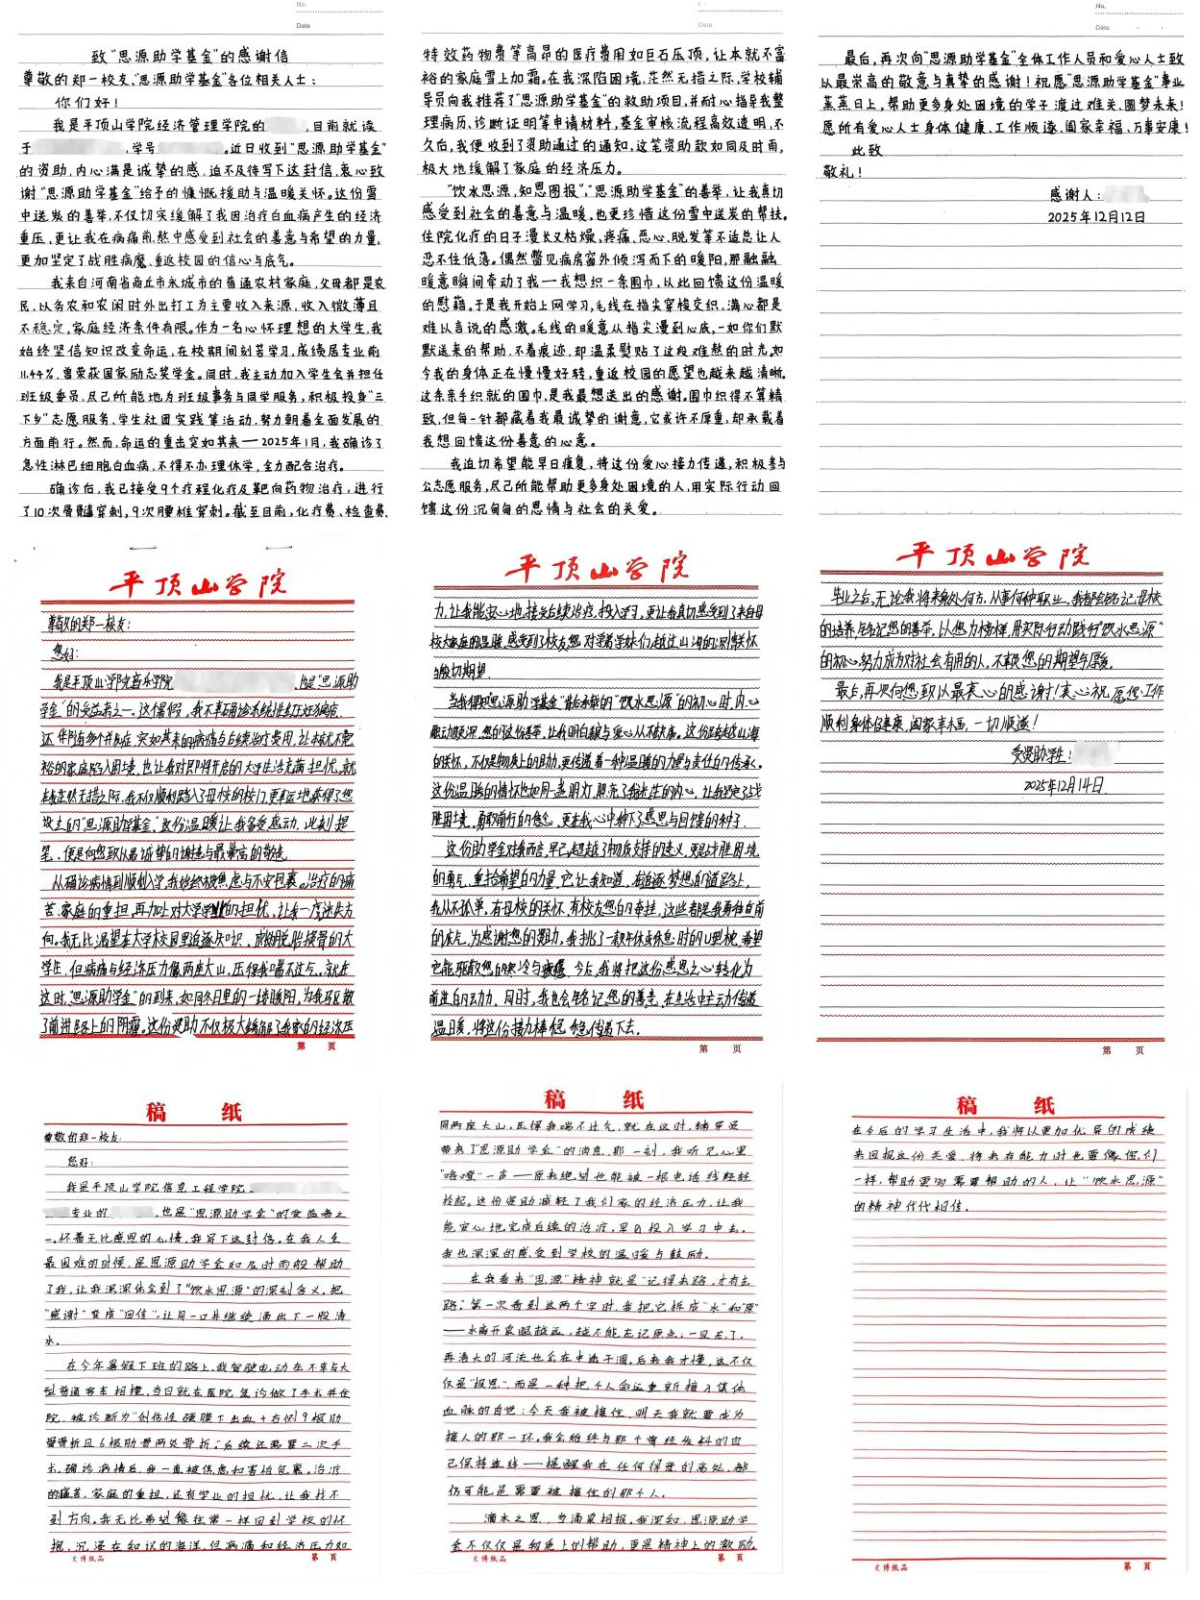 No.
Date
致“思源助学基金”的感谢信
尊敬的郑一校友、“思源助学基金”各位相关人士：
你们好！
我是平顶山学院经济管理学院的 ，目前就读
于 ，学号 。近日收到“思源助学基金”
的资助，内心满是诚挚的感，迫不及待写下这封信，衷心致
谢“思源助学基金”给予的慷慨援助与温暖关怀。这份雪
中送炭的善举，不仅切实缓解了我因治疗白血病产生的经济
重压，更让我在病痛煎熬中感受到社会的善意与希望的力量，
更加坚定了战胜病魔、重返校园的信心与底气。
我来自河南省商丘市永城市的普通农村家庭，父母都是农
民，以务农和农闲时外出打工为主要收入来源，收入微薄且
不稳定，家庭经济条件有限。作为一名心怀理想的大学生，我
始终坚信知识改变命运，在校期间刻苦学习，成绩居专业前
11.44%，曾荣获国家励志奖学金。同时，我主动加入学生会并担任
班级委员，尽己所能地为班级事务与同学服务，积极投身“三
下乡”志愿服务、学生社团实践等活动，努力朝着全面发展的
方面前行。然而，命运的重击突如其来——2025年1月，我确诊了
急性淋巴细胞白血病，不得不办理休学，全力配合治疗。
确诊后，我已接受9个疗程化疗及靶向药物治疗，进行
了10次骨髓穿刺，9次腰椎穿刺。截至目前，化疗费、检查费、
Date
特效药物费等高昂的医疗费用如巨石压顶，让本就不富
裕的家庭雪上加霜。在我深陷困境、茫然无措之际，学校辅
导员向我推荐了“思源助学基金”的救助项目，并耐心指导我整
理病历、诊断证明等申请材料，基金审核流程高效透明，不
久后，我便收到了资助通过的通知，这笔资助款如同及时雨，
极大地缓解了家庭的经济压力。
“饮水思源，知恩图报”，“思源助学基金”的善举，让我真切
感受到社会的善意与温暖，也更珍惜这份雪中送炭的帮扶。
住院化疗的日子漫长又枯燥，疼痛、恶心、脱发等不适总让人
忍不住低落。偶然瞥见病房窗外倾泻而下的暖阳，那融融
暖意瞬间牵动了我——我想织一条围巾，以此回馈这份温暖
的慰藉。于是我开始上网学习，毛线在指尖穿梭交织，满心都是
难以言说的感激。毛线的暖意从指尖漫到心底，一如你们默
默送来的帮助，不着痕迹，却温柔熨贴了这段难熬的时光。如
今我的身体正在慢慢好转，重返校园的愿望也越来越清晰。
这条亲手织就的围巾，是我最想送出的感谢。围巾织得不算精
致，但每一针都藏着我最诚挚的谢意，它或许不厚重，却承载着
我想回馈这份善意的心意。
我迫切希望能早日康复，将这份爱心接力传递，积极参与
公志愿服务，尽己所能帮助更多身处困境的人，用实际行动回
馈这份沉甸甸的恩情与社会的关爱。
No.
Date
最后，再次向“思源助学基金”全体工作人员和爱心人士致
以最崇高的敬意与真挚的感谢！祝愿“思源助学基金”事业
蒸蒸日上，帮助更多身处困境的学子渡过难关、圆梦未来！
愿所有爱心人士身体健康、工作顺遂、阖家幸福、万事安康！
此致
敬礼！
感谢人：
2025年12月12日
平顶山学院
尊敬的郑一校友：
您好：
我是平顶山学院音乐学院 ，也是“思源助
学金”的受益者之一。这个暑假，我不幸确诊系统性红斑狼疮，
还伴随着多个并发症，突如其来的病痛与后续治疗费用，让本就不宽
裕的家庭陷入困境，也让我对即将开启的大学生活充满担忧，就
在我茫然无措之际，我不仅顺利踏入了母校的校门，更幸运地获得了您
设立的“思源助学基金”，这份温暖让我备受感动，此刻提
笔，便是向您致以最诚挚的谢意与最崇高的敬意。
从确诊病情到顺利入学，我始终被焦虑与不安包裹。治疗的痛
苦、家庭的重担，再加上对大学学业的担忧，让我一度迷失方
向。我无比渴望在大学校园里追逐知识，成为脱胎换骨的大
学生，但病痛与经济压力像两座大山，压得我喘不过气。就在
这时，“思源助学金”的到来，如同冬日里的一缕暖阳，为我驱散
了前进路上的阴霾。这份资助不仅极大缓解了我家的经济压
第 页
平顶山学院
力，让我能安心地接受后续治疗、投入学习，更让我真切感受到了来自母
校大家庭的温暖，感受到了校友您对学弟学妹们超过山海的深情关怀
与殷切期望。
当我得知“思源助学基金”能承载的“饮水思源”的初心时，内心
触动极深。您的这份善举，让我明白爱与爱心从不缺席。这份跨越山海
的关怀，不仅是物质上的助力，更传递着一种温暖的力量与责任的传承。
这份温暖的情怀也如同一盏明灯，照亮了我迷茫的内心，让我坚定了战
胜困境，勇敢前行的信念，更在我心中种下了感恩与回馈的种子。
这份助学金对我而言，早已超越了物质支持的意义，更是战胜困境
的勇气，重拾希望的力量，它让我知道，在追逐梦想的道路上，
我从不孤单，有母校的关怀，有校友您的牵挂，这些都是我勇往直前
的底气。为感谢您的资助，我挑了一款午休或休息时的U型枕，希望
它能驱散您的寒冷与疲惫。今后，我将把这份感恩之心转化为
前进的动力，同时，我也会铭记您的善意，在生活中主动传递
温暖，将这份接力棒稳稳传递下去。
第 页
平顶山学院
毕业之后，无论我将来身处何方，从事何种职业，我都会铭记母校
的培养，铭记您的善举，以您为榜样，用实际行动践行“饮水思源”
的初心，努力成为对社会有用的人，不辜负您的期望与厚爱。
最后，再次向您致以最衷心的感谢！衷心祝愿您工作
顺利，身体健康，阖家幸福，一切顺遂！
受资助学生：
2025年12月14日
第 页
稿 纸
尊敬的郑一校友：
您好：
我是平顶山学院信息工程学院
专业的 ，也是“思源助学金”的受益者之
一。怀着无比感恩的心情，我写下这封信。在我人生
最困难的时候，是思源助学金如及时雨般帮助
了我，让我深深体会到了“饮水思源”的深刻含义，把
“感谢”变成“回信”，让每一口井继续涌出下一股清
水。
在今年暑假下班的路上，我驾驶电动车不幸与大
型普通客车相撞，当日就在医院急诊做了手术并住
院，被诊断为“创伤性硬膜下出血+右侧9根肋
骨骨折且6根肋骨两处骨折。”后续还需要二次手
术。确诊病情后，我一直被焦虑和害怕包裹。治疗
的痛苦，家庭的重担，还有学业的担忧，让我找不
到方向。我无比希望像往常一样回到学校的怀
抱，沉浸在知识的海洋，但病痛和经济压力如
文博纸品
第 页
稿 纸
同两座大山，压得我喘不过气。就在这时，辅导员
带来了“思源助学金”的消息，那一刻，我听见心里
“咯噔”一声——原来绝望也能被一根电话线轻轻
拎起。这份资助减轻了我们家的经济压力，让我
能安心地完成后续的治疗，早日投入学习中去。
我也深深的感受到学校的温暖与鼓励。
在我看来“思源”精神就是“记得来路，才有去
路。”第一次看到这两个字时，我把它拆成“水”和“源”
——水离开泉眼越远，越不能忘记原点；一旦忘了，
再浩大的河流也会在中途干涸。后来我才懂，这不仅
仅是“报恩”，而是一种把个人命运重新接入集体
血脉的自觉：今天我被接住，明天我就要成为
接人的那一环。我会始终与那个曾经发料的自
己保持连线——提醒我在任何得意的高处，都
仍可能是需要被接住的那个人。
滴水之恩，当涌泉相报。我深知，思源助学
金不仅仅是物质上的帮助，更是精神上的激励。
文博纸品
第 页
稿 纸
在今后的学习生活中，我将以更加优异的成绩
来回报这份关爱，将来有能力时也要像您们
一样，帮助更多需要帮助的人，让“饮水思源”
的精神代代相传。
文博纸品
第 页